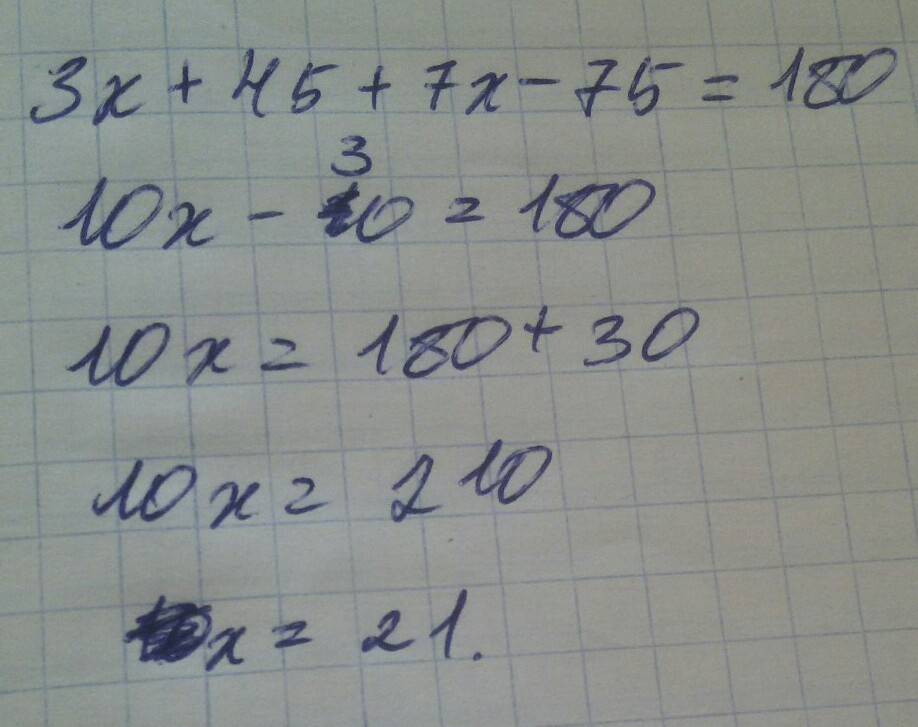 3x + 45 + 7x - 75 = 180
10x - 30 = 180
10x = 180 + 30
10x = 210
x = 21.